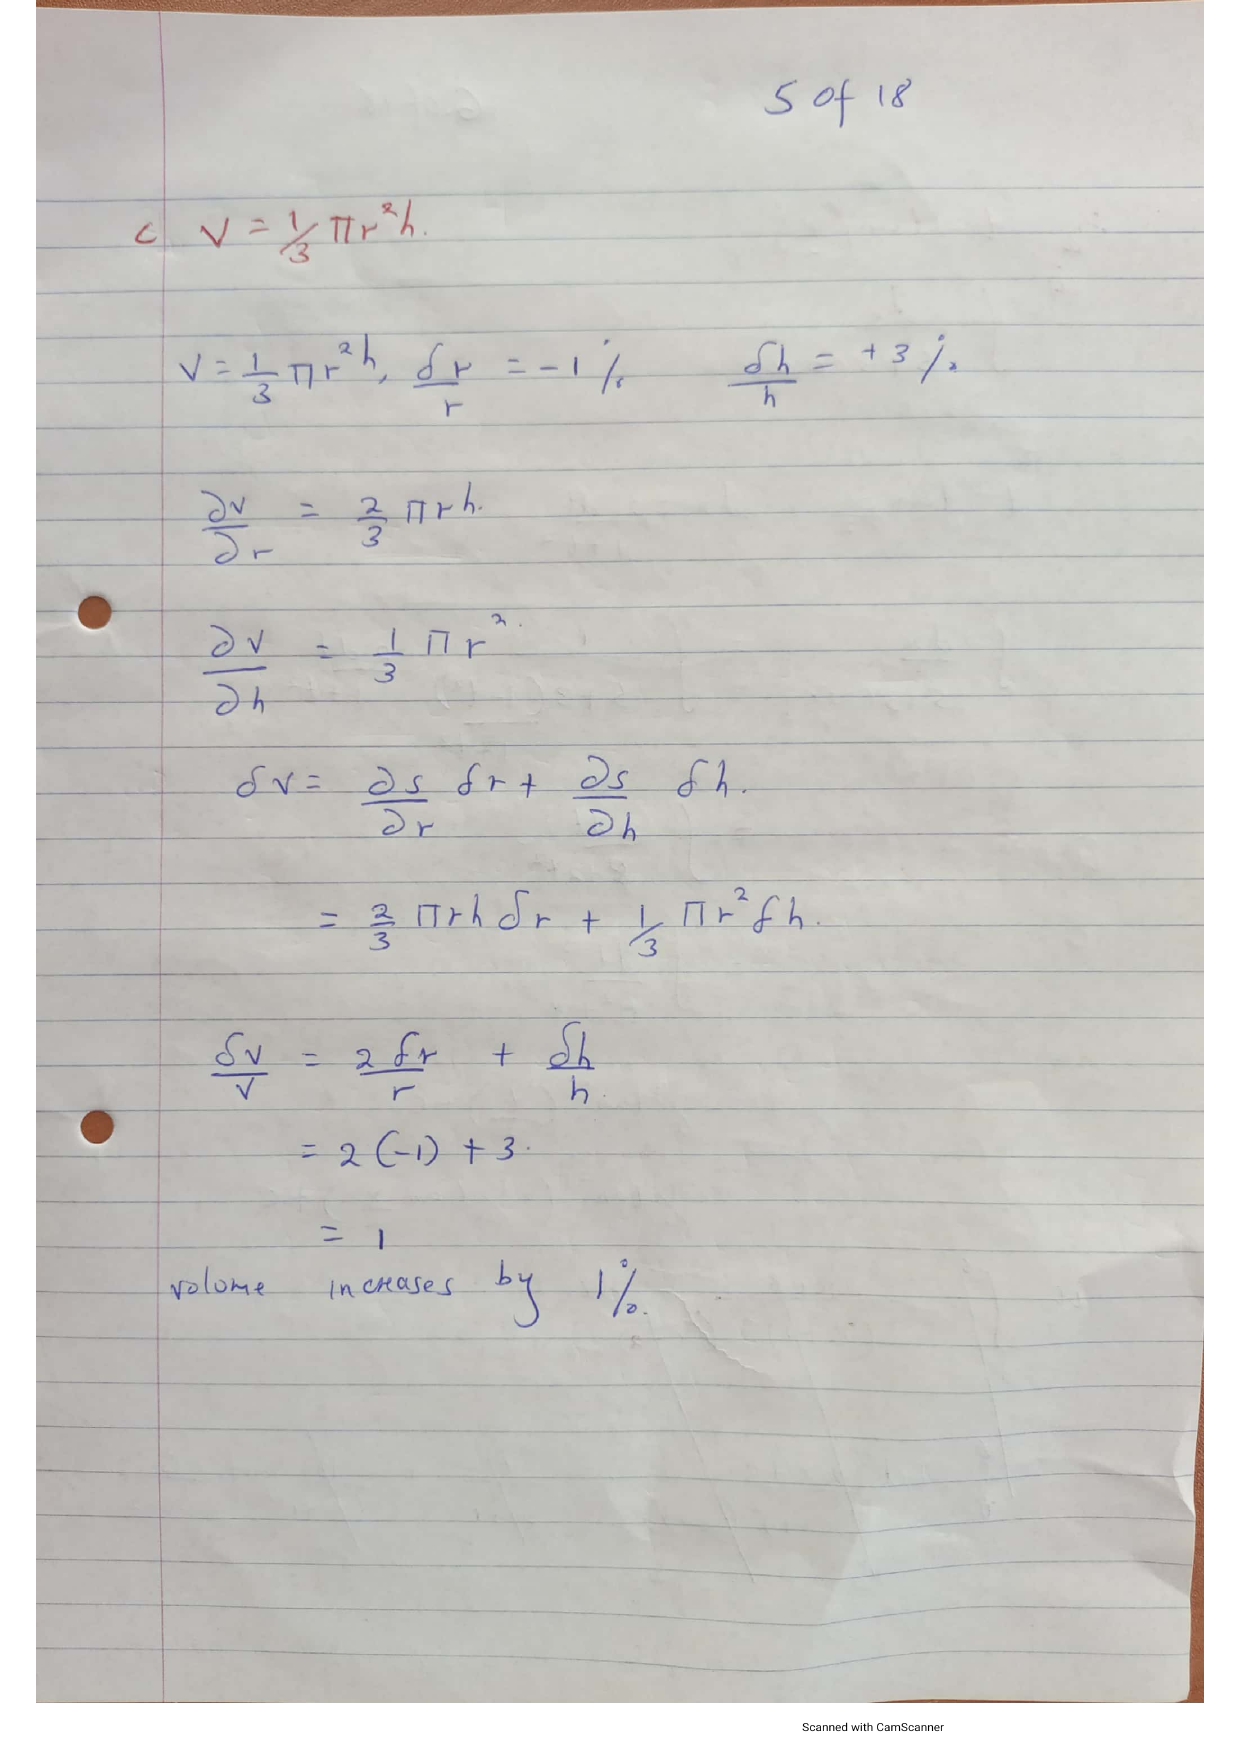 5 of 18
c V = 1/3 πr²h.
V = 1/3 πr²h, δr/r = -1% δh/h = +3%
∂v/∂r = 2/3 πrh.
∂v/∂h = 1/3 πr².
δv = ∂s/∂r δr + ∂s/∂h δh.
= 2/3 πrh δr + 1/3 πr² δh.
δv/v = 2δr/r + δh/h.
= 2(-1) + 3.
= 1
volume increases by 1%.
Scanned with CamScanner